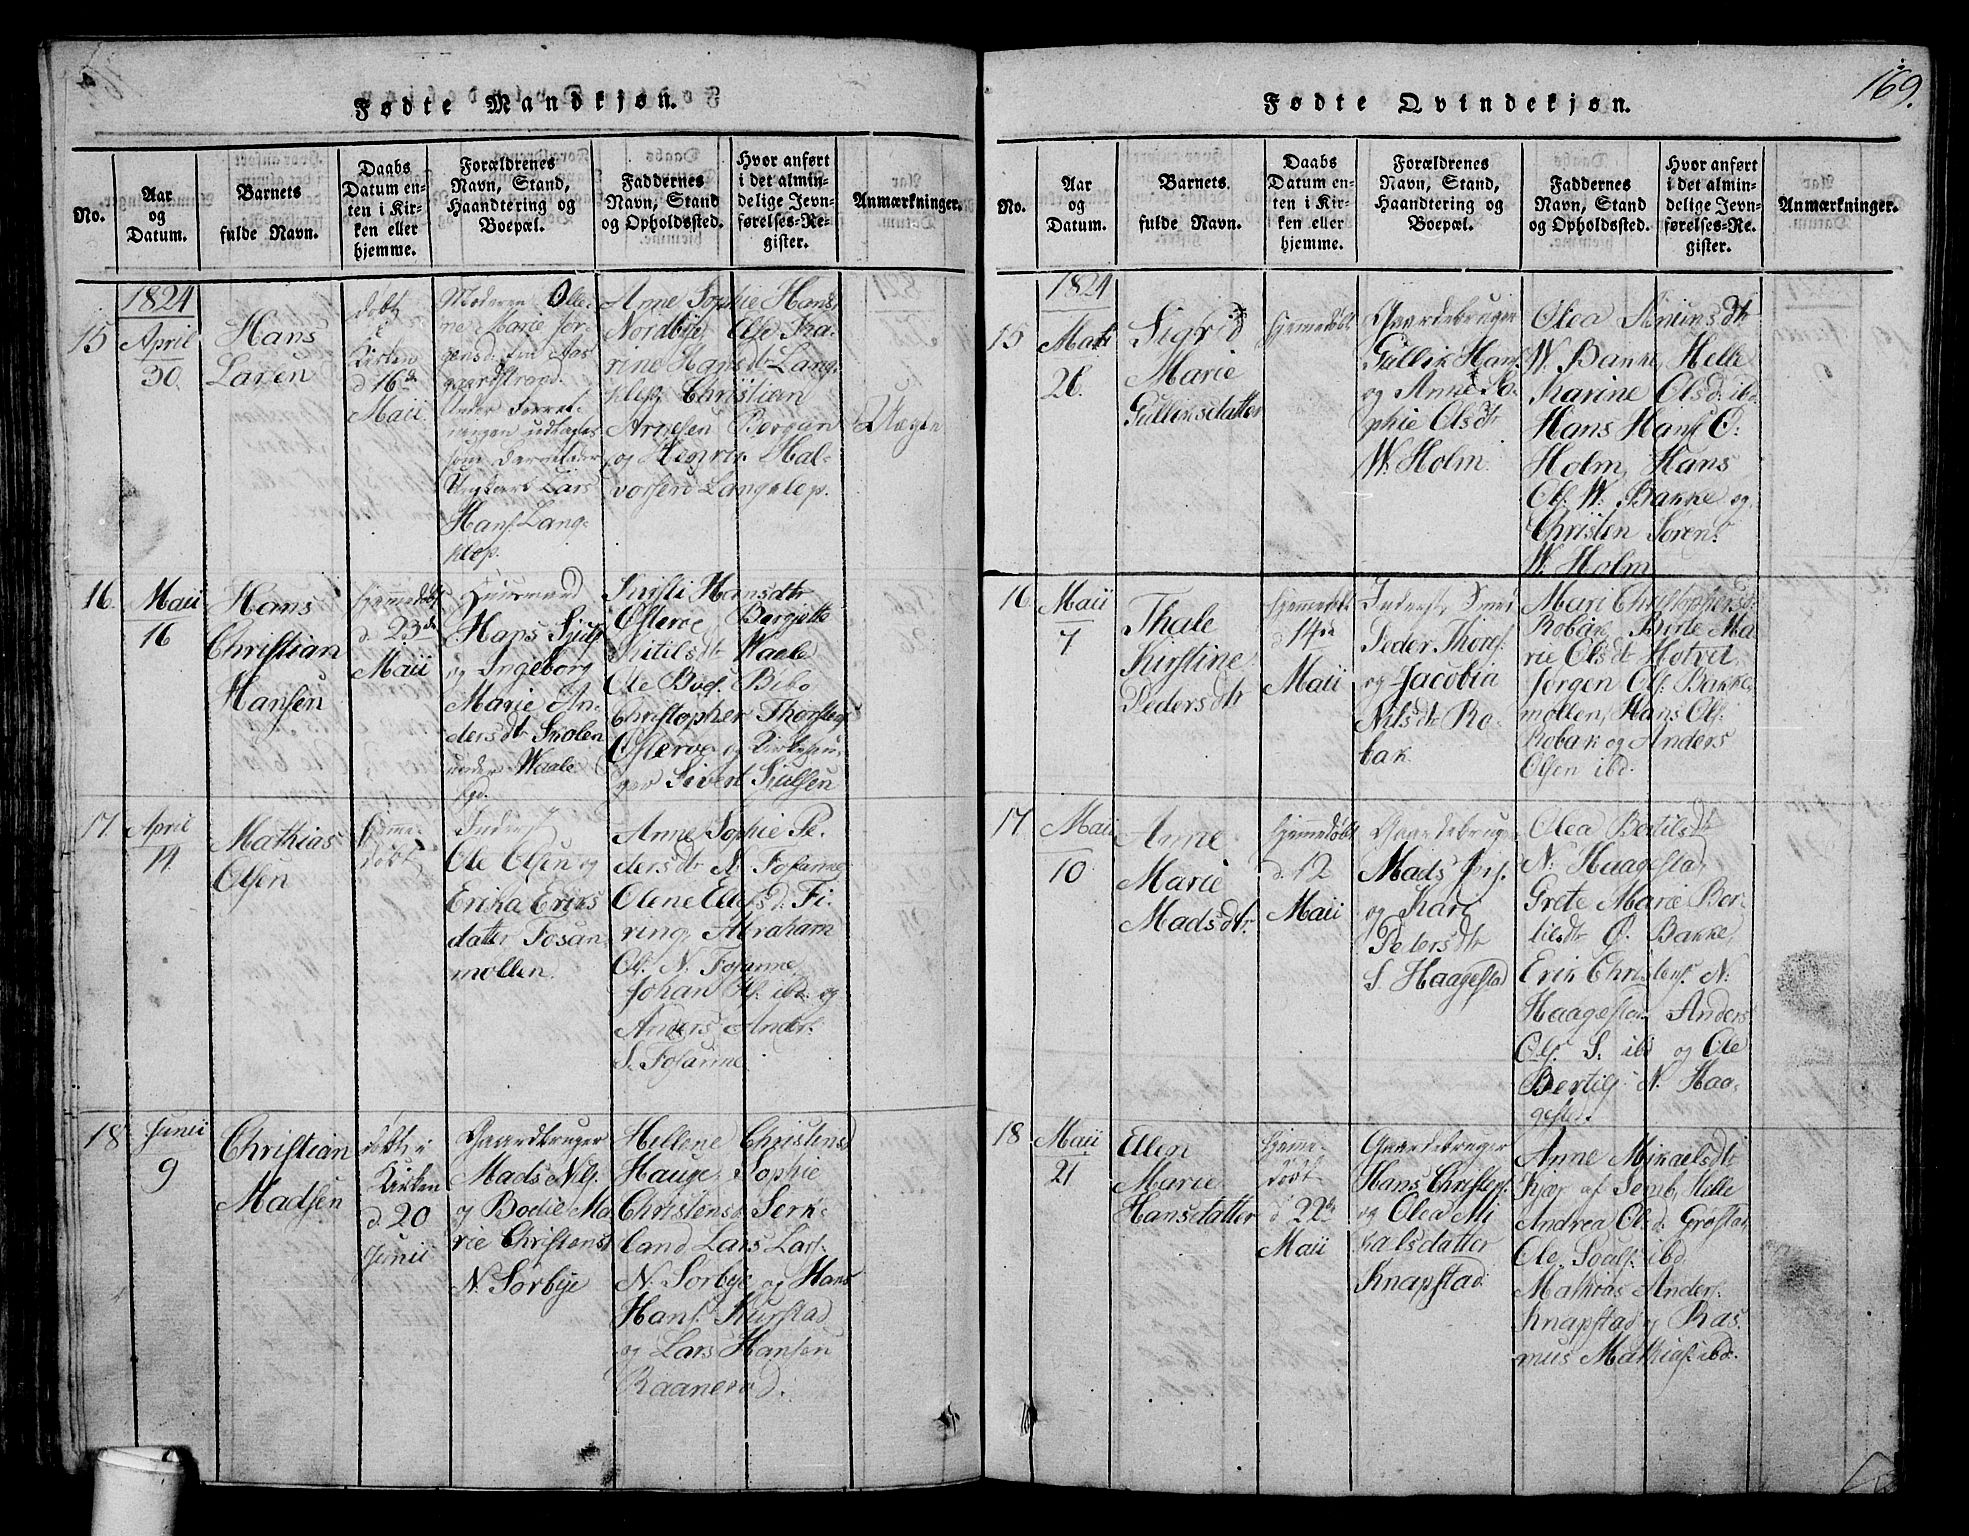 169.
Fødte Mandkjøn.
No.
Aar
og
Datum.
Barnets
fulde Navn.
Daabs
Datum en-
ten i Kir-
ken eller
hjemme.
Forældrenes
Navn, Stand,
Haandtering og
Boepæl.
Faddernes
Navn, Stand
og Opholdssted.
Hvor anført
i det almin-
delige Jevn-
førelses-Re-
gister.
Anmærkninger.
15
1824
April
30.
Hans
Larsen
døbt
i
Kirken
d 16de
Maii
Moderen Olle-
ne Marie Jør-
gensd. fra Aas-
gaardstrand.
Under Forret-
ningen udlagt
som Barnefader
Ungkarl Lars
Hans. Lang-
klep.
Anne Sophie Hans
Nordbye Else Ka-
rine Hansdr Lang-
klep, Christian
Arnesen Bergan
og Henrik Hal-
vorsen Langklep.
Uægte
16.
Maii
16
Hans
Christian
Hansen
hjemmedøbt
d. 23de
Maii
Huusmand
Hans Sjuls
og Ingeborg
Marie An-
dersdtr Skolen
under Waale
Kirsti Hansdtr
Østerøe Bergitte
Kitilsdtr Waale
Ole
Christopher Thorstens
Østerøe og
ger Sivert Sjulsen
17.
April
14.
Mathias
Olsen
hjemme-
døbt
Inderst
Ole Olsen og
Erika Eriks
datter Fosan
møllen.
Anne Sophie Pe-
dersdtr N. Fosanne
Olene Ellefsd. Fi-
ring, Abraham
Ols. N. Fosanne,
Johan Ols. ibd. og
Anders Anders.
S. Fosanne.
18
Junii
9
Christian
Madsen
døbt i
Kirken
d 20
Junii
Gaardbruger
Mads Nils.
og Bodil Ma
rie Christensd
N. Sørbye
Hellene Christensd
Hauge, Sophie
Christensd Serk-
land Lars Lars.
N. Sørbye og Hans
Hans. Kurstad
og Lars Hansen
Raanerød.
Fødte Qvindekjøn.
No.
Aar
og
Datum.
Barnets
fulde Navn.
Daabs
Datum en-
ten i Kir-
ken eller
hjemme.
Forældrenes
Navn, Stand,
Haandtering og
Boepæl.
Faddernes
Navn, Stand
og Opholdssted.
Hvor anført
i det almin-
delige Jevn-
førelses-Re-
gister.
Anmærkninger.
15
1824
Marts
26.
Sigrid
Marie
Gulliksdatter
hjemmedøbt
Gaardebruger
Gullik Hans.
og Anne So-
phie Olsdtr
W. Holm.
Olea Simensdtr
W. Bakke, Helle
Karine Olsd. ibd.
Hans Hans. Ø.
Holm, Hans
Ols. W. Bakke og
Christen Sørens.
W. Holm
16.
Maii
7
Thale
Kirstine
Pedersdtr
hjemmedøbt
d. 14de
Maii
Inderst, Smed
Peder Thors.
og Jacobia
Nilsdtr Ro-
bak
Mari Christophersd.
Robak, Birte Ma-
rie Olsdtr Hotvet,
Jørgen Ols. Bakke
møllen, Hans Ols.
Robak og Anders
Olsen ibd.
17
Maii
10
Anne
Marie
Madsdtr.
hjemmedøbt
d. 12
Maii
Gaardebruger
Mads Jørs.
og Kari
Pedersdtr
S. Haagestad
Olea Bertilsdtr
N. Haagestad,
Grete Marie Ber-
tilsdtr Ø. Bakke,
Erik Christens. N.
Haagestad, Anders
Ols. S. ibd og Ole
Bertils. N. Haa-
gestad.
18
Maii
21
Ellen
Marie
Hansdatter
hjemme-
døbt
d. 22de
Maii
Gaardebruger
Hans Christens.
og Olea Mi
kalsdatter
Knapstad
Anne Mikaelsdtr
Kjær af Semb, Helle
Andrea Olsd. Grøstad,
Ole ibd
Mathias Anders.
Knapstad og Ras
mus Mathias. ibd.